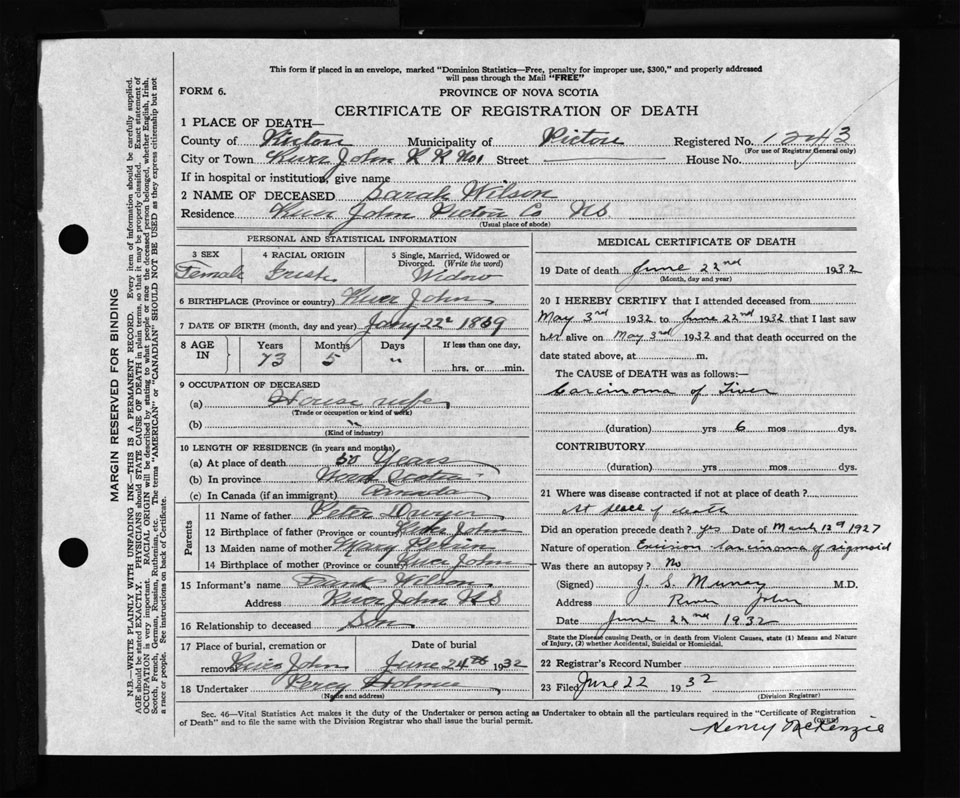 This form if placed in an envelope, marked "Dominion Statistics—Free, penalty for improper use, $300," and properly addressed
will pass through the Mail "FREE"
FORM 6.
PROVINCE OF NOVA SCOTIA
CERTIFICATE OF REGISTRATION OF DEATH
1 PLACE OF DEATH—
County of Pictou Municipality of Pictou Registered No. 1243
(For use of Registrar General only)
City or Town River John R R No1 Street House No.
If in hospital or institution, give name
2 NAME OF DECEASED Sarah Wilson
Residence River John Pictou Co N.S.
(Usual place of abode)
PERSONAL AND STATISTICAL INFORMATION
3 SEX Female
4 RACIAL ORIGIN Irish
5 Single, Married, Widowed or Divorced. (Write the word) Widow
6 BIRTHPLACE (Province or country) River John
7 DATE OF BIRTH (month, day and year) Jany 22 1859
8 AGE IN Years 73 Months 5 Days " If less than one day, hrs. or min.
9 OCCUPATION OF DECEASED
(a) House wife
(Trade or occupation or kind of work)
(b) "
(Kind of industry)
10 LENGTH OF RESIDENCE (in years and months)
(a) At place of death 50 Years
(b) In province Nova Scotia
(c) In Canada (if an immigrant) Canada
Parents
11 Name of father Peter
12 Birthplace of father (Province or country) River John
13 Maiden name of mother Mary
14 Birthplace of mother (Province or country) River John
15 Informant's name Frank Wilson
Address River John N S
16 Relationship to deceased Son
17 Place of burial, cremation or removal River John
Date of burial June 24th 1932
18 Undertaker Percy
(Name and address)
MEDICAL CERTIFICATE OF DEATH
19 Date of death June 22nd 1932
(Month, day and year)
20 I HEREBY CERTIFY that I attended deceased from
May 3rd 1932 to June 22nd 1932 that I last saw
her alive on May 3rd 1932 and that death occurred on the
date stated above, at m.
The CAUSE of DEATH was as follows:—
Carcinoma of Liver
(duration) yrs 6 mos dys.
CONTRIBUTORY
(duration) yrs mos dys.
21 Where was disease contracted if not at place of death?
At place of death
Did an operation precede death? yes Date of March 1927
Nature of operation Excision Carcinoma of sigmoid
Was there an autopsy? No
(Signed) J. S. Murray M.D.
Address River John
Date June 22 1932
State the Disease causing Death, or in death from Violent Causes, state (1) Means and Nature
of Injury, (2) whether Accidental, Suicidal or Homicidal.
22 Registrar's Record Number
23 Filed June 22 1932
(Division Registrar)
Henry McKenzie
Sec. 46—Vital Statistics Act makes it the duty of the Undertaker or person acting as Undertaker to obtain all the particulars required in the "Certificate of Registration
of Death" and to file the same with the Division Registrar who shall issue the burial permit.
(OVER)
MARGIN RESERVED FOR BINDING
N.B.—WRITE PLAINLY WITH UNFADING INK—THIS IS A PERMANENT RECORD. Every item of information should be carefully supplied.
AGE should be stated EXACTLY. PHYSICIANS should STATE CAUSE OF DEATH in plain terms, so that it may be properly classified. Exact statement of
OCCUPATION is very important. RACIAL ORIGIN will be described by stating to what people or race the deceased person belonged, whether English, Irish,
Scotch, French, German, Russian, Ruthenian, etc. The terms "AMERICAN" or "CANADIAN" SHOULD NOT BE USED as they express citizenship but not
a race or people. See instructions on back of Certificate.